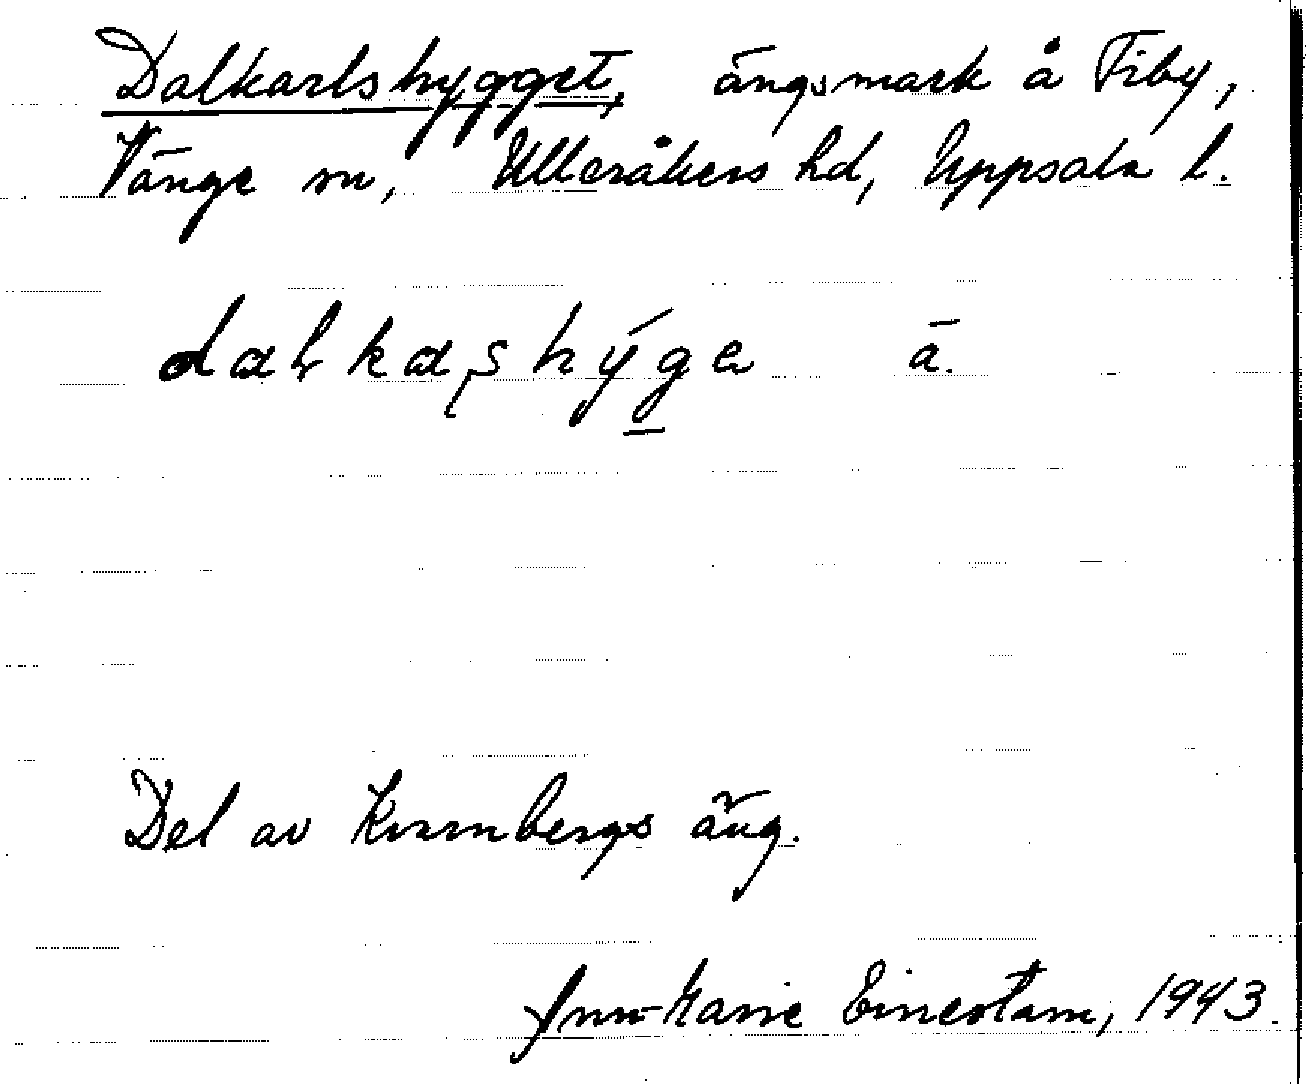 Dalkarlshygget, ängsmark å Fiby,
Vänge sn, Ulleråkers hd, Uppsala l.
ä.
Del av Kvarnbergs äng.
Ann-Marie 1943.